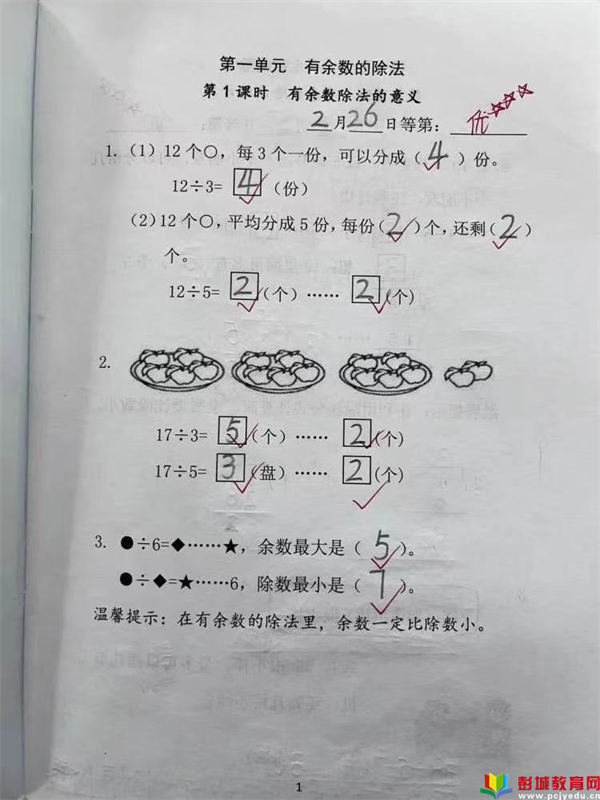 第一单元 有余数的除法
第1课时 有余数除法的意义
2月26日等第：优☆☆☆
1.（1）12个〇，每3个一份，可以分成（4）份。
12÷3=4（份）
（2）12个〇，平均分成5份，每份（2）个，还剩（2）
个。
12÷5=2（个）……2（个）
2.
17÷3=5（个）……2（个）
17÷5=3（盘）……2（个）
3. ●÷6=◆……★，余数最大是（5）。
●÷◆=★……6，除数最小是（7）。
温馨提示：在有余数的除法里，余数一定比除数小。
1
彭城教育网
www.pcjyedu.cn